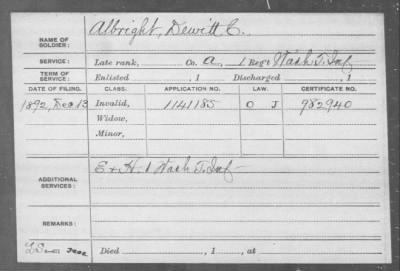 NAME OF SOLDIER: Albright, Dewitt C.
SERVICE: Late rank, Co. A, 1 Reg't Wash T. Inf
TERM OF SERVICE: Enlisted , 1 Discharged , 1
DATE OF FILING. CLASS. APPLICATION NO. LAW. CERTIFICATE NO.
1892, Dec 13 Invalid, 1141185 O J 982940
Widow,
Minor,
ADDITIONAL SERVICES: E + H. 1 Wash T. Inf
REMARKS:
Died , 1 , at